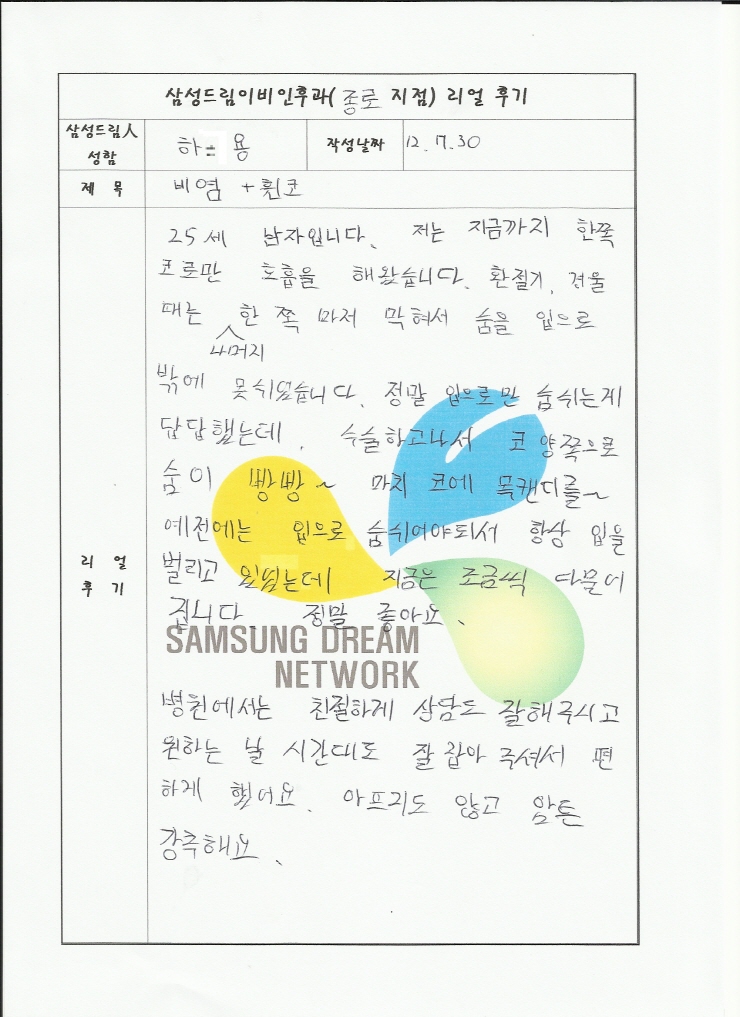 삼성드림이비인후과(종로 지점) 리얼 후기
삼성드림人
성함
하 용
작성날짜
12. 7. 30
제 목
비염 + 휜코
리 얼
후 기
25세 남자입니다. 저는 지금까지 한쪽
코로만 호흡을 해왔습니다. 환절기, 겨울
때는 한 쪽 마저 막혀서 숨을 입으로
나머지
밖에 못쉬었습니다. 정말 입으로만 숨쉬는게
답답했는데, 수술하고나서 코 양쪽으로
숨이 빵빵~ 마치 코에 목캔디를~
예전에는 입으로 숨쉬어야되서 항상 입을
벌리고 있었는데 지금은 조금씩 다물어
집니다. 정말 좋아요.
SAMSUNG DREAM
NETWORK
병원에서는 친절하게 상담도 잘해주시고
원하는 날 시간대도 잘 잡아 주셔서 편
하게 했어요. 아프지도 않고 암튼
강추해요.